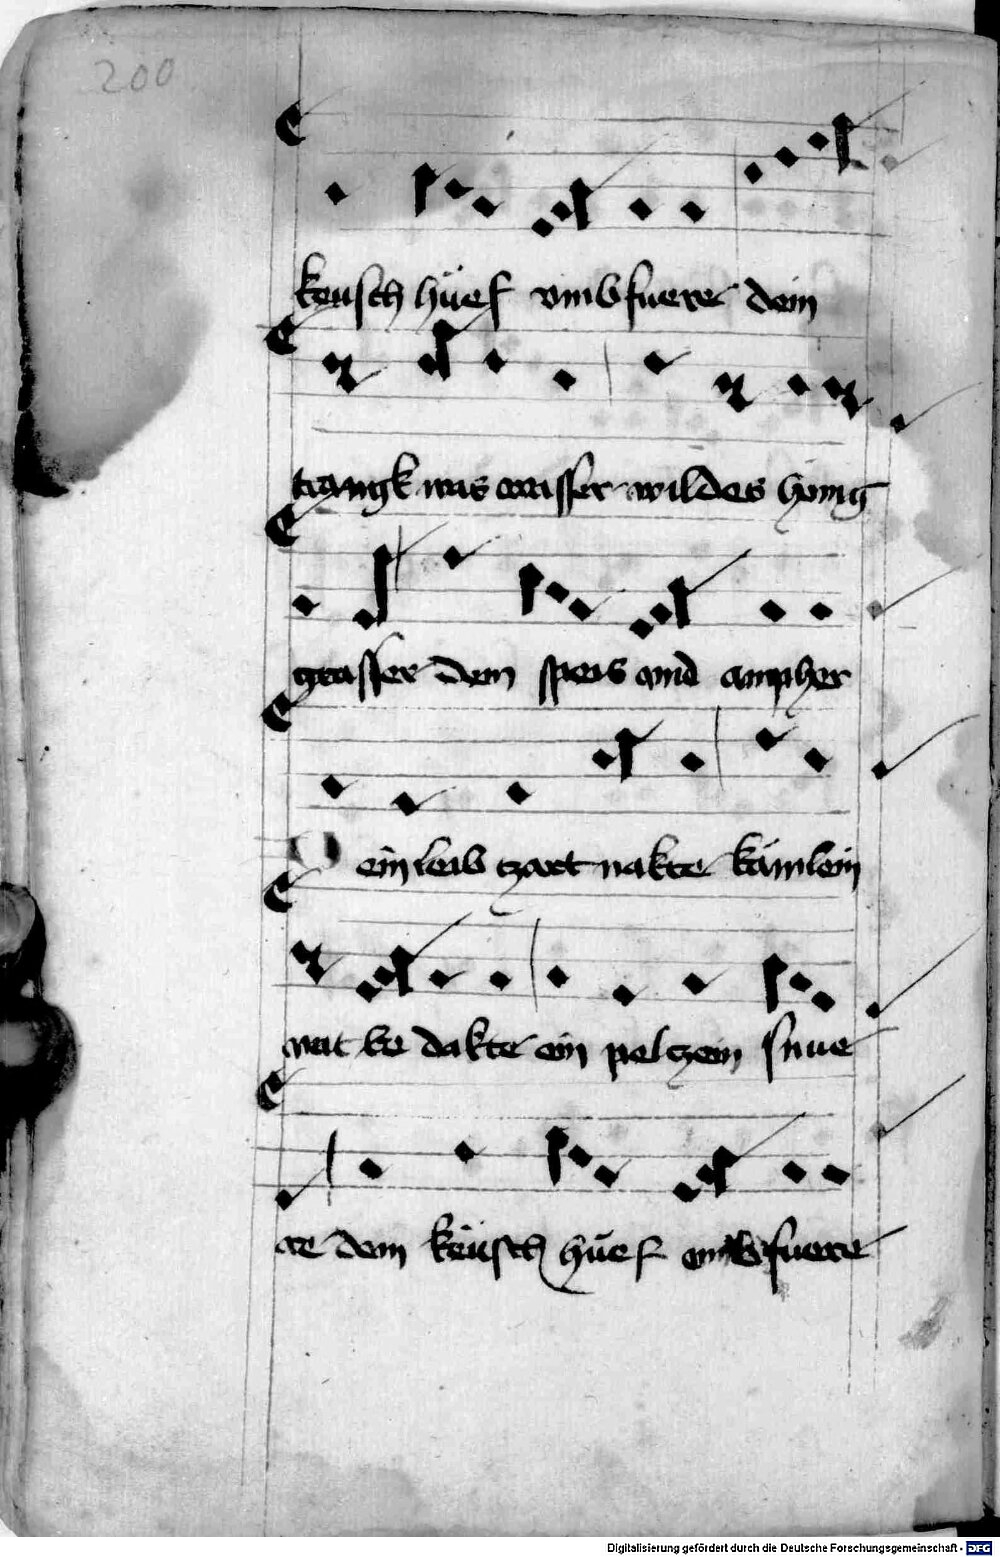 200
keusch hüef vmbfuere dein
trangk was wasser wildes hönig
grasser dem speis vnd ampher
ein leib tzart nakte kämlein
wat be dakte ein peltzein snue
re dem keüsch hüef vmbfuere
Digitalisierung gefördert durch die Deutsche Forschungsgemeinschaft - DFG